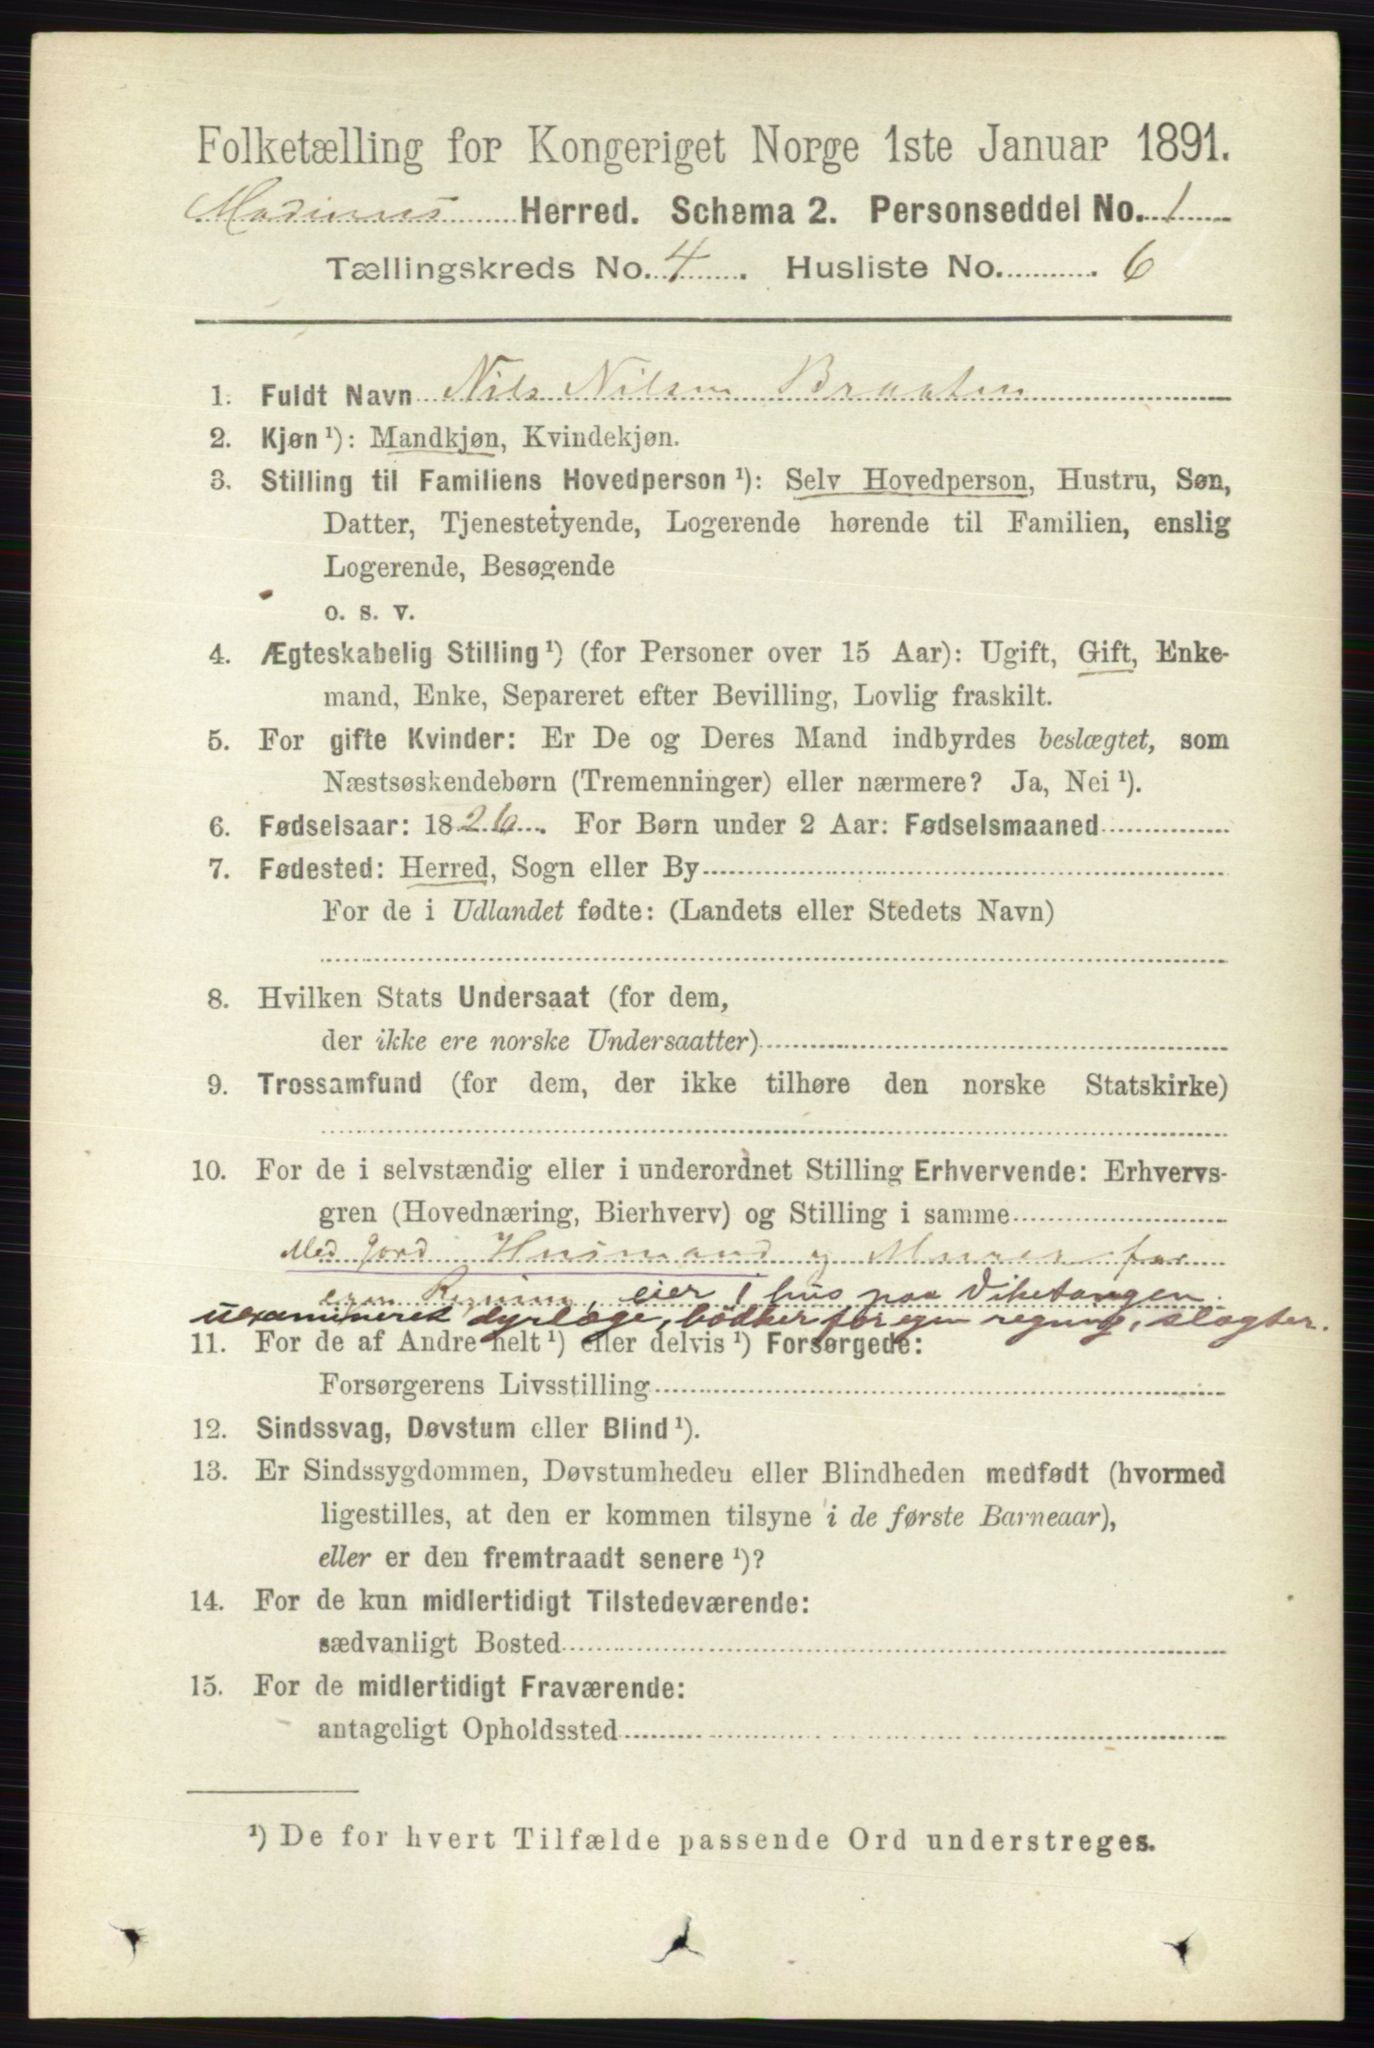 Folketælling for Kongeriget Norge 1ste Januar 1891.
Modums Herred. Schema 2. Personseddel No. 1
Tællingskreds No. 4. Husliste No. 6
1. Fuldt Navn Nils Nilsen Braaten
2. Kjøn ¹): Mandkjøn, Kvindekjøn.
3. Stilling til Familiens Hovedperson ¹): Selv Hovedperson, Hustru, Søn,
Datter, Tjenestetyende, Logerende hørende til Familien, enslig
Logerende, Besøgende
o. s. v.
4. Ægteskabelig Stilling ¹) (for Personer over 15 Aar): Ugift, Gift, Enke-
mand, Enke, Separeret efter Bevilling, Lovlig fraskilt.
5. For gifte Kvinder: Er De og Deres Mand indbyrdes beslægtet, som
Næstsøskendebørn (Tremenninger) eller nærmere? Ja, Nei ¹).
6. Fødselsaar: 1826. For Børn under 2 Aar: Fødselsmaaned
7. Fødested: Herred, Sogn eller By
For de i Udlandet fødte: (Landets eller Stedets Navn)
8. Hvilken Stats Undersaat (for dem,
der ikke ere norske Undersaatter)
9. Trossamfund (for dem, der ikke tilhøre den norske Statskirke)
10. For de i selvstændig eller i underordnet Stilling Erhvervende: Erhvervs-
gren (Hovednæring, Bierhverv) og Stilling i samme
Med Jord Husmand og Murer for
egen Regning, eier 1 hus paa Viketangen.
uexamineret dyrlæge, bödker for egen regning, slagter.
11. For de af Andre helt ¹) eller delvis ¹) Forsørgede:
Forsørgerens Livsstilling
12. Sindssvag, Døvstum eller Blind ¹).
13. Er Sindssygdommen, Døvstumheden eller Blindheden medfødt (hvormed
ligestilles, at den er kommen tilsyne i de første Barneaar),
eller er den fremtraadt senere ¹)?
14. For de kun midlertidigt Tilstedeværende:
sædvanligt Bosted
15. For de midlertidigt Fraværende:
antageligt Opholdssted
¹) De for hvert Tilfælde passende Ord understreges.